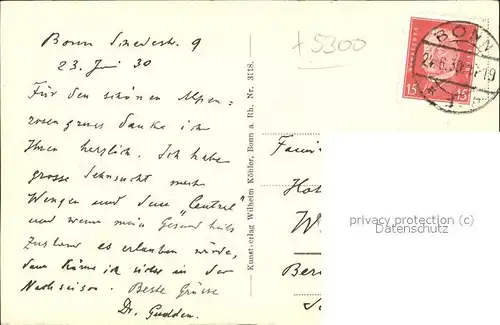 Bonn
23. Juni 30
Für den schönen Alpen=
rosengruss danke ich
Ihnen herzlich. Ich habe
grosse Sehnsucht nach
Wengen und dem "Central"
und wenn mein Gesundheits
Zustand es erlauben würde,
dann käme ich sicher in der
Nachsaison. Beste Grüsse
Dr. Gudden.
+ 5300
Kunstverlag Wilhelm Köhler, Bonn a. Rh. Nr. 3118.
BONN
15 15
Fami
Ho
W
Ber
privacy protection (c)
Datenschutz